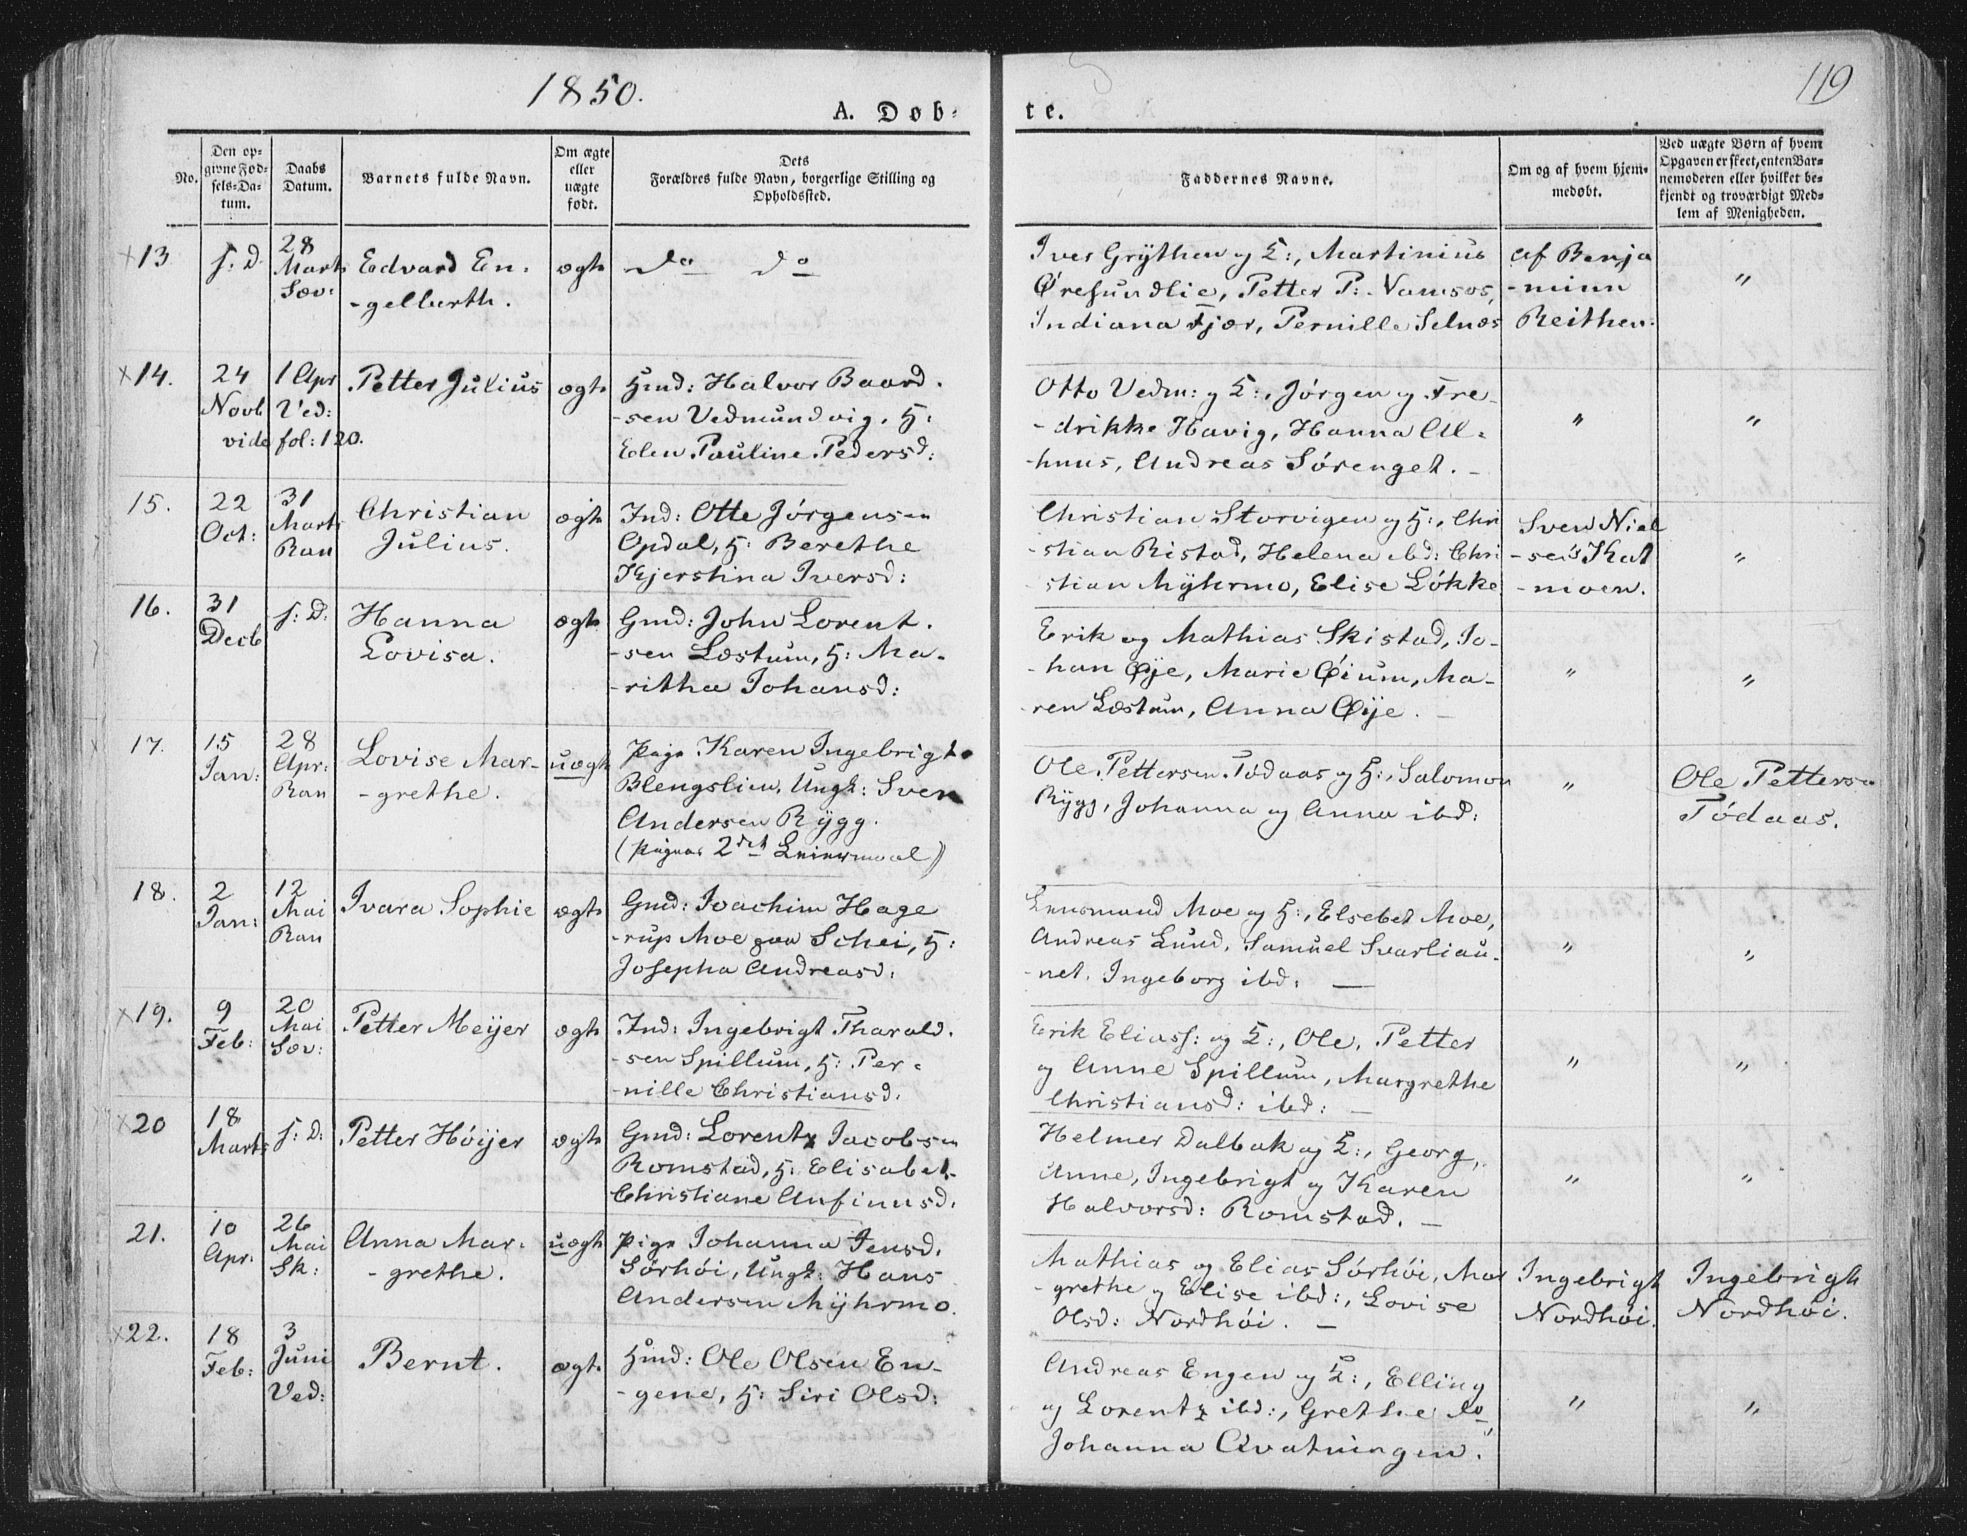 1850.
119
A. Døb-
te.
No.
Den op-
givne Fød-
sels-Da-
tum.
Daabs
Datum.
Barnets fulde Navn.
Om ægte
eller
uægte
født.
Dets
Forældres fulde Navn, borgerlige Stilling og
Opholdssted.
Faddernes Navne.
Om og af hvem hjem-
medøbt.
Ved uægte Børn af hvem
Opgaven er skeet, enten Bar-
nemoderen eller hvilket be-
kjendt og troværdigt Med-
lem af Menigheden.
×13
s: D.
28
Marts
Sæv:
Edvard En-
-gelberth.
ægte
Do Do
Iver Grÿthen og H:, Martinius
Øresundlie, Petter P: Namsos,
Indiana Fjær, Pernille Selnæs
af Benja
-minn
Reithen.
"
×14.
24
Novb
1 Apr
Ved:
vide fol: 120.
Petter Julius
ægte
Hmd: Halvor Baard.
-sen Vedmundvig, H:
Elen Pauline Pedersd:
Otto Vedm: og H:, Jørgen og Fre-
-drikke Havig, Hanna Al-
-huus, Andreas Sørenget. -
"
"
15.
22
Oct:
31
Marts
Ran
Christian
Julius.
ægte
Ind: Otte Jørgensen
Opdal, H: Berethe
Kjerstina Iversd:
Christian Storvigen og H:, Chri
-stian Ristad, Helena ibd: Chri
-stian Mÿhrmo, Elise Løkke
Sven Niel
-sen Kat
-moen.
"
16.
31
Decb
s: D:
Hanna
Lovisa.
ægte
Gmd: John Lorent.
-sen Læstum, H: Ma-
-ritha Johansd:
Erik og Mathias Skistad, Jo-
-han Øÿe, Marie Øium, Ma-
ren Læstum, Anna Øÿe. -
"
"
17.
15
Jan:
28
Apr:
Ran
Lovise Mar-
-grethe.
uægte
Pige Karen Ingebrigt.
Blengslien, Ungk: Sven
Andersen Rÿgg.
(Pigens 2det Leiermaal)
Ole Pettersen Fødaas og H:, Salomon
Rÿgg, Johanna og Anna ibd:
"
Ole Petters.
Fødaas.
18.
2
Jan:
12
Mai
Ran
Ivara Sophie
ægte
Gmd: Joachim Hage
-rup Moe paa Schei, H:
Josepha Andreasd:
Lensmand Moe og H:, Elsebet Moe,
Andreas Lund, Samuel Svarliau-
-net. Ingeborg ibd: -
"
"
×19.
9
Feb:
20
Mai
Sæv:
Petter Meÿer
ægte
Ind: Ingebrigt Tharald.
-sen Spillum, H: Per-
-nille Christiansd:
Erik Eliass: og H:, Ole, Petter
og Anne Spillum, Margrethe
Christiansd: ibd: -
"
"
×20
18
Marts
s: D:
Petter Høÿer
ægte
Gmd: Lorentz Jacobsen
Romstad, H: Elisabet
Christiane Anfinnsd:
Helmer Dalbak og H:, Georg,
Anne, Ingebrigt og Karen
Halvorsd: Romstad. -
"
"
21.
10
Apr:
26
Mai
Sk:
Anna Mar-
-grethe.
uægte
Pige Johanna Jensd.
Sørhøi, Ungk: Hans
Andersen Mÿhrmo.
Mathias og Elias Sørhøi, Mar
-grethe og Elise ibd:, Lovise
Olsd: Nordhøi. -
Ingebrigt
Nordhøi.
Ingebrigt
Nordhøi.
×22.
18
Feb:
3
Juni
Ved:
Bernt.
ægte
Hmd: Ole Olsen En-
-gene, H: Siri Olsd:
Andreas Engen og H:, Elling
og Lorentz ibd:, Grethe do
Johanna Qvatningen.
"
"